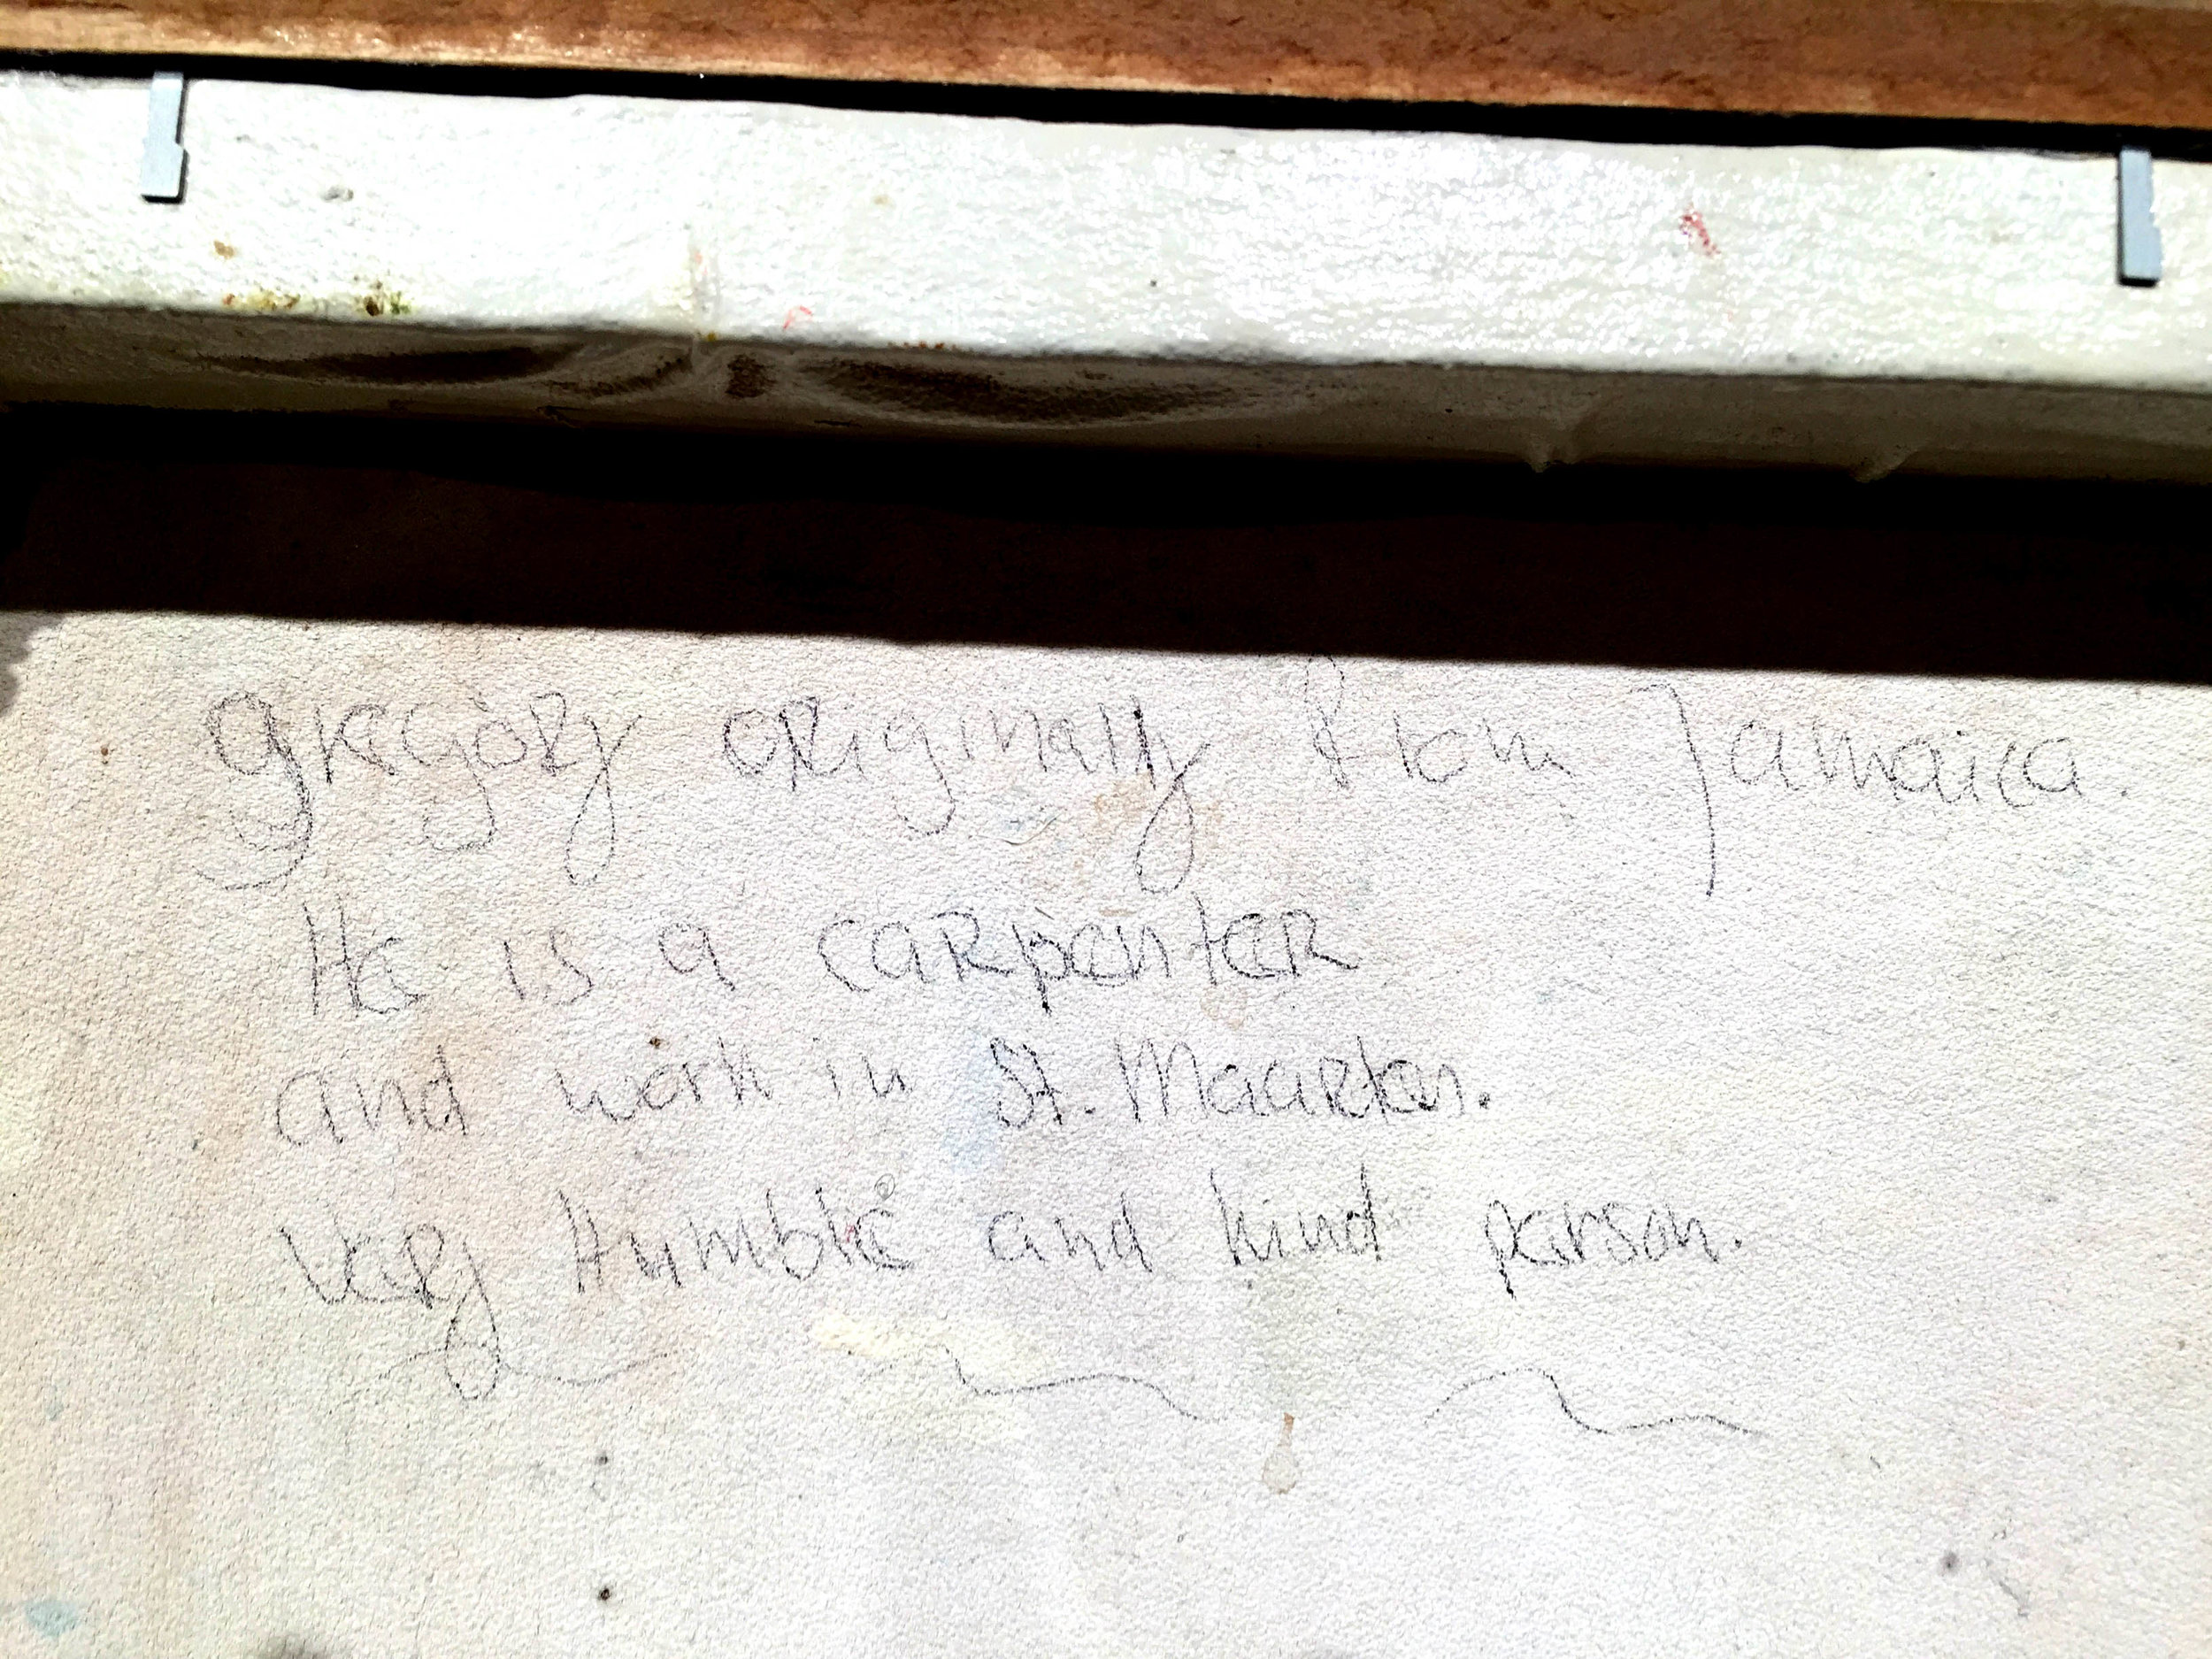 gregory originally from Jamaica.
He is a carpenter
and work in St. Maarten.
Very Humble and kind person.